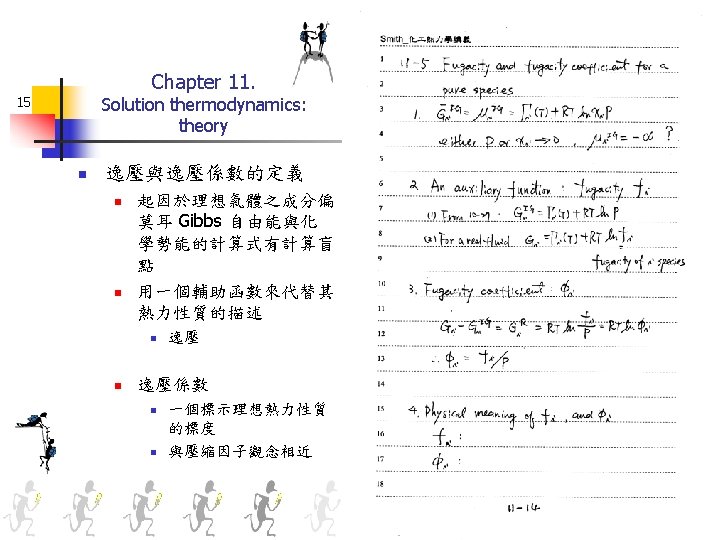 Chapter 11.
15
Solution thermodynamics:
theory
逸壓與逸壓係數的定義
起因於理想氣體之成分偏
莫耳 Gibbs 自由能與化
學勢能的計算式有計算盲
點
用一個輔助函數來代替其
熱力性質的描述
逸壓
逸壓係數
一個標示理想熱力性質
的標度
與壓縮因子觀念相近
Smith_化工熱力學講義
1 11-5 Fugacity and fugacity coefficient for a
2 pure species
3 1. Ḡᵢᴵᴳ = μᵢᴵᴳ = Γᵢ(T) + RT ln xᵢP
4 either P or xᵢ → 0, μᵢᴵᴳ = -∞ ?
5
6 2. An auxiliary function : fugacity fᵢ
7 (1) From Gᵢᴵᴳ = Γᵢ(T) + RT ln P
8 (2) For a real fluid Gᵢ = Γᵢ(T) + RT ln fᵢ
9 fugacity of i species
10 3. Fugacity coefficient : φᵢ
11
12 Gᵢ - Gᵢᴵᴳ = Gᵢᴿ = RT ln fᵢ/P = RT ln φᵢ
13 ∴ φᵢ = fᵢ/P
14
15 4. Physical meaning of fᵢ, and φᵢ
16 fᵢ :
17 φᵢ :
18
11-14